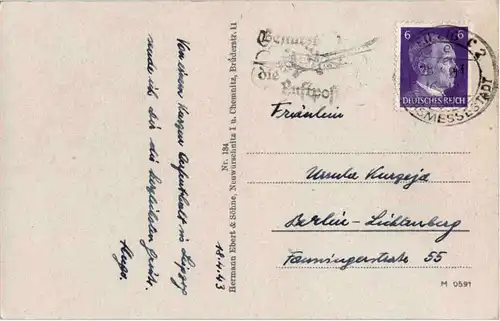 Von einem kurzen Aufenthalt in Leipzig
sende ich Dir die herzlichsten Grüße.
Hugo.
18.4.43
Nr. 134
Hermann Ebert & Söhne, Neuwürschnitz I u. Chemnitz, Brüderstr. 11
Benutzt
die
Luftpost
6 6
DEUTSCHES REICH
C 2
SMESSESTADT
Fräulein
Ursula Kurzeja
Berlin-Lichtenberg
Fanningerstraße 55
M 0591